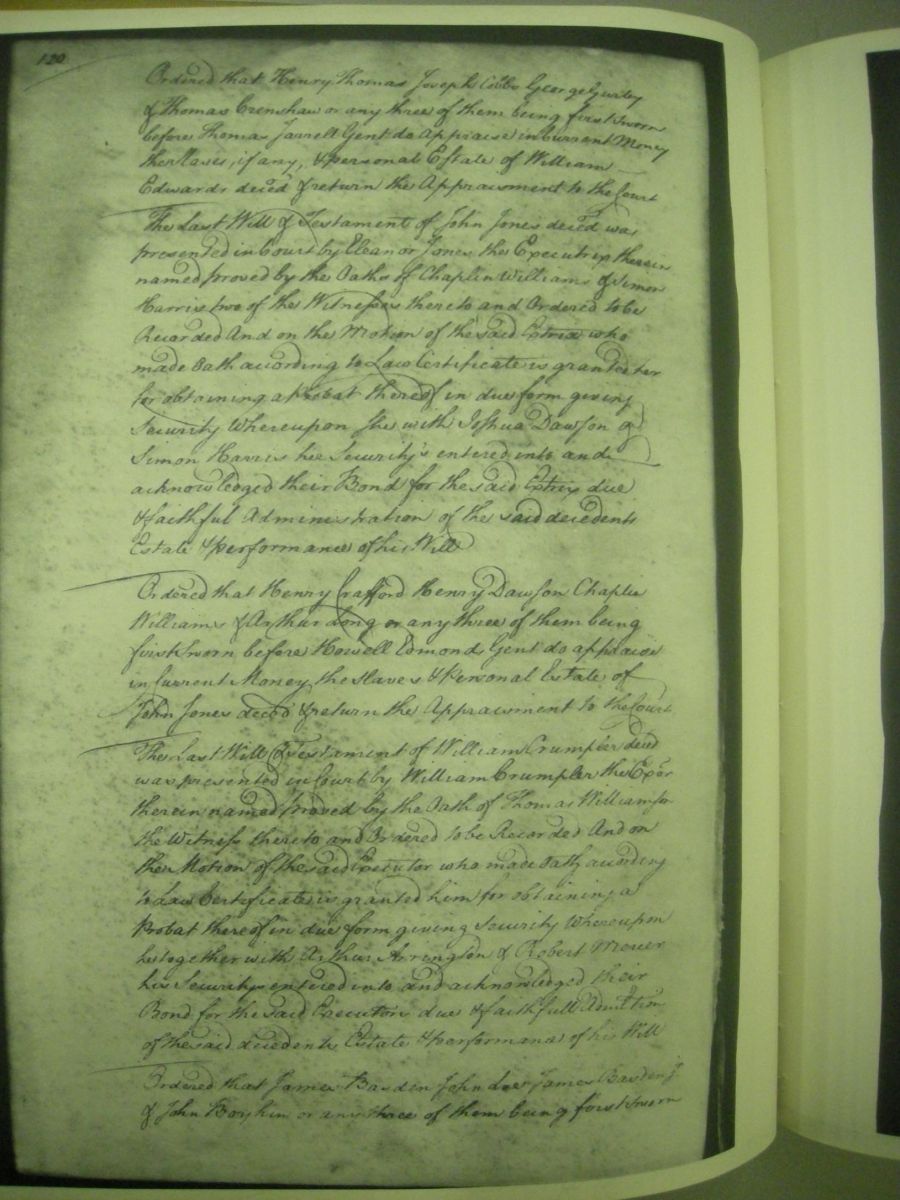 120
Ordered that Henry Thomas Joseph Cobbs George Gurley
& Thomas Crenshaw or any three of them being first Sworn
before Thomas Jarrell Gent do Appraise in Current Money
the Slaves, if any, & personal Estate of William
Edwards deced & return the Appraisment to the Court
The Last Will & Testament of John Jones deced was
presented in Court by Eleanor Jones the Executrix therein
named proved by the Oaths of Chaplin Williams & Simon
Harris two of the Witnesses thereto and Ordered to be
Recorded And on the Motion of the said Extrix who
made Oath according to Law Certificate is granted her
for obtaining a Probat thereof in due form giving
Security Whereupon She with Joshua Dawson &
Simon Harris her Security's entered into and
acknowledged their Bond for the said Extrix due
& faithful Administration of the said decedents
Estate & performance of his Will
Ordered that Henry Crafford Henry Dawson Chaplin
Williams & Arthur Long or any three of them being
first Sworn before Howell Edmonds Gent do appraise
in Current Money the Slaves & Personal Estate of
John Jones deced & return the Appraisment to the Court
The Last Will & Testament of William Crumpler deced
was presented in Court by William Crumpler the Exor
therein named proved by the Oath of Thomas Williamson
the Witness thereto and Ordered to be Recorded And on
the Motion of the said Executor who made Oath according
to Law Certificate is granted him for obtaining a
Probat thereof in due form giving Security Whereupon
he together with Arthur Arrington & Robert Mercer
his Securitys entered into and acknowledged their
Bond for the said Executors due & faithfull Admtion
of the said decedents Estate & performance of his Will
Ordered that James Barden John James Barden Jr
& John Boykin or any three of them being first Sworn